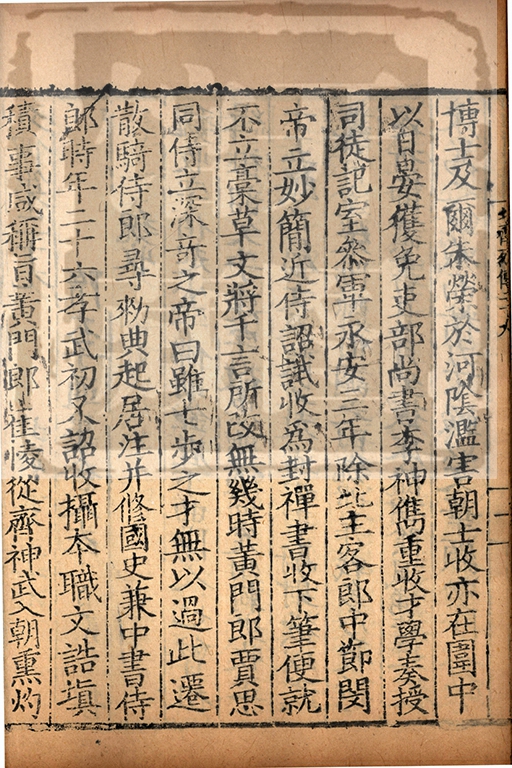 博士及爾朱榮於河陰濫害朝士收亦在圍中
以日晏獲免吏部尚書李神儁重收才學奏授
司徒記室參軍永安三年除北主客郎中節閔
帝立妙簡近侍詔試收為封禪書收下筆便就
不立藁草文將千言所改無幾時黃門郎賈思
同侍立深奇之帝曰雖七步之才無以過此遷
散騎侍郎尋勑典起居注并修國史兼中書侍
郎時年二十六孝武初又詔收攝本職文誥塡
積事咸稱旨黃門郎崔㥄從齊神武入朝熏灼